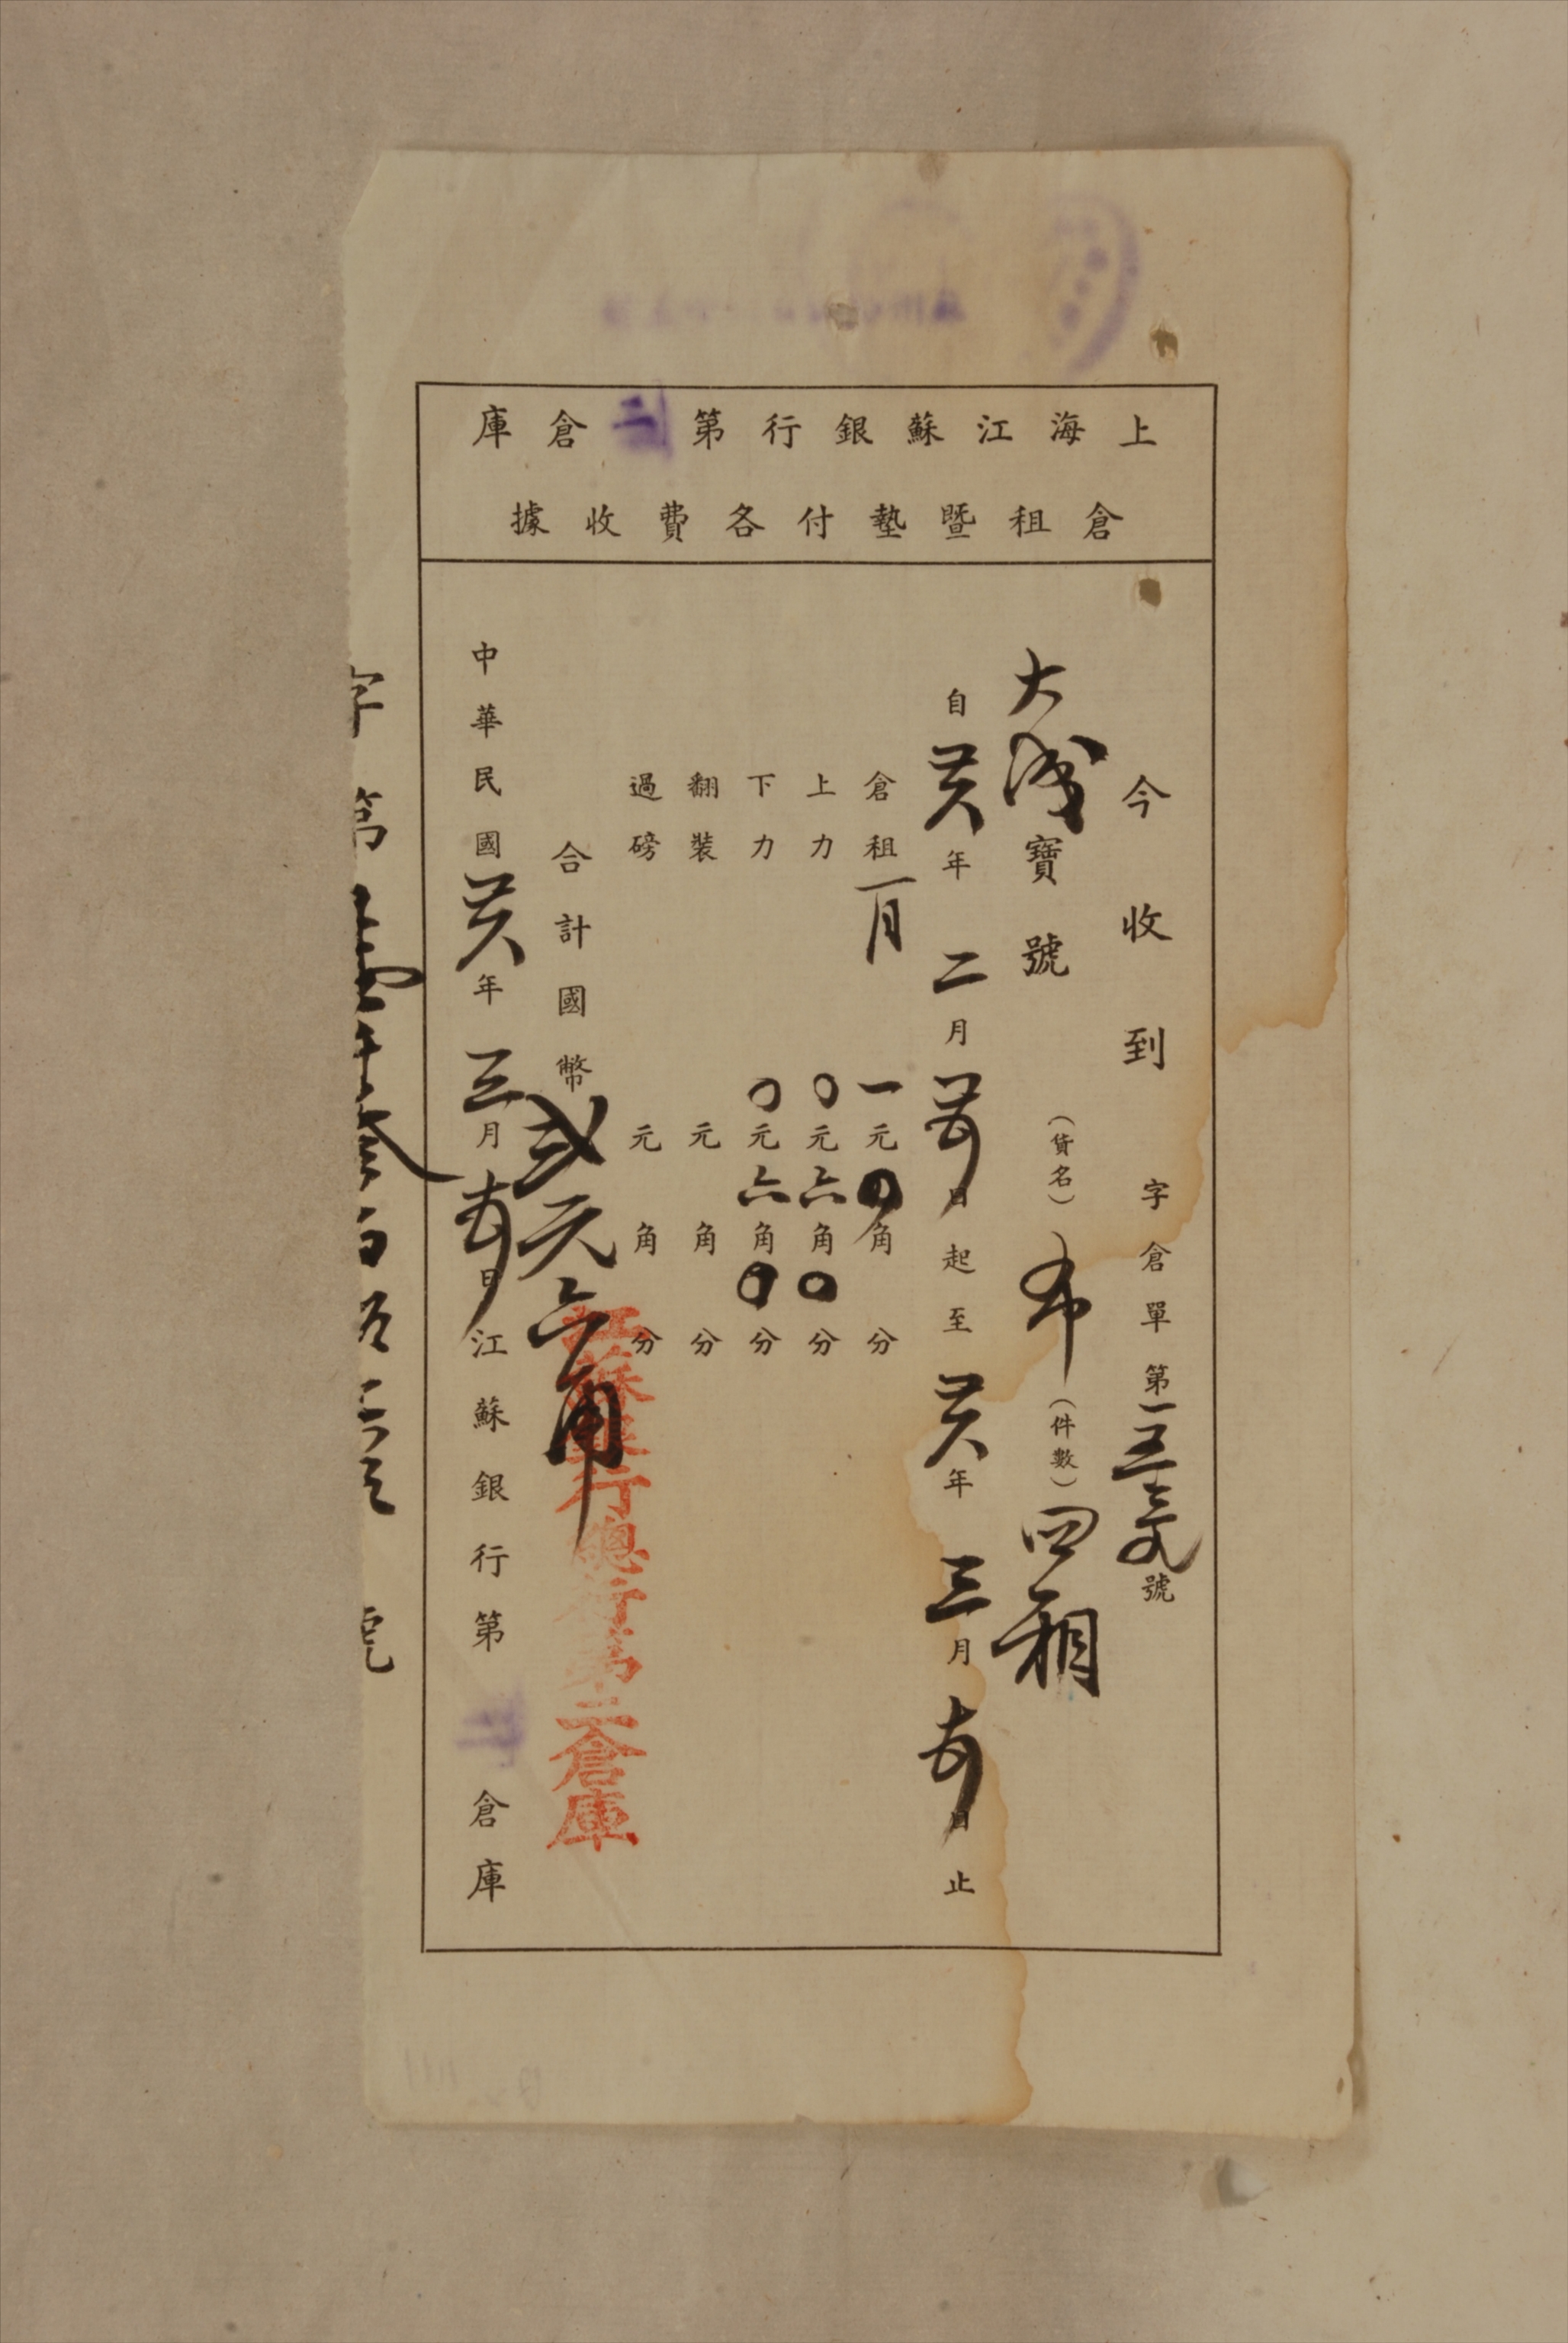 上海江蘇銀行第二倉庫
倉租暨墊付各費收據
今收到 字倉單第一五號
大成寶號（貨名）布（件數）四箱
自廿六年二月廿五日起至廿六年三月十五日止
倉租一月 一元四角 分
上力 〇元六角〇分
下力 〇元六角〇分
翻裝 元 角 分
過磅 元 角 分
合計國幣弍元六角
江蘇銀行總行第二倉庫
中華民國廿六年三月十五日江蘇銀行第二倉庫
字第壹千叁百號